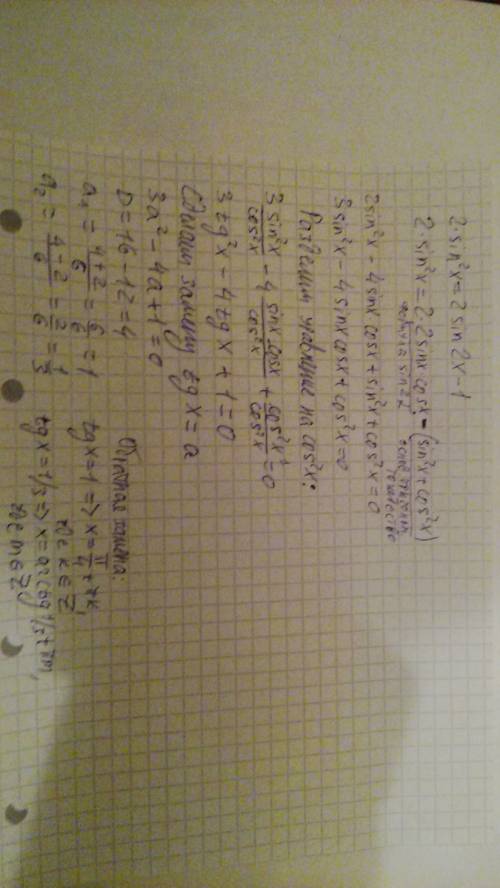 2·sin²x = 2 sin 2x - 1
2 sin²x = 2·2 sinx cosx - (sin²x + cos²x)
формула sin 2x основн. тригоном. тождество
2 sin²x - 4 sinx cosx + sin²x + cos²x = 0
3 sin²x - 4 sinx cosx + cos²x = 0
Разделим уравнение на cos²x:
3 sin²x/cos²x - 4 sinx cosx/cos²x + cos²x/cos²x = 0
3 tg²x - 4 tgx + 1 = 0
Сделаем замену tgx = a
3a² - 4a + 1 = 0
D = 16 - 12 = 4
a₁ = (4+2)/6 = 6/6 = 1
a₂ = (4-2)/6 = 2/6 = 1/3
Обратная замена:
tgx = 1 => x = π/4 + πk,
где k ∈ Z
tgx = 1/3 => x = arctg 1/3 + πm,
где m ∈ Z